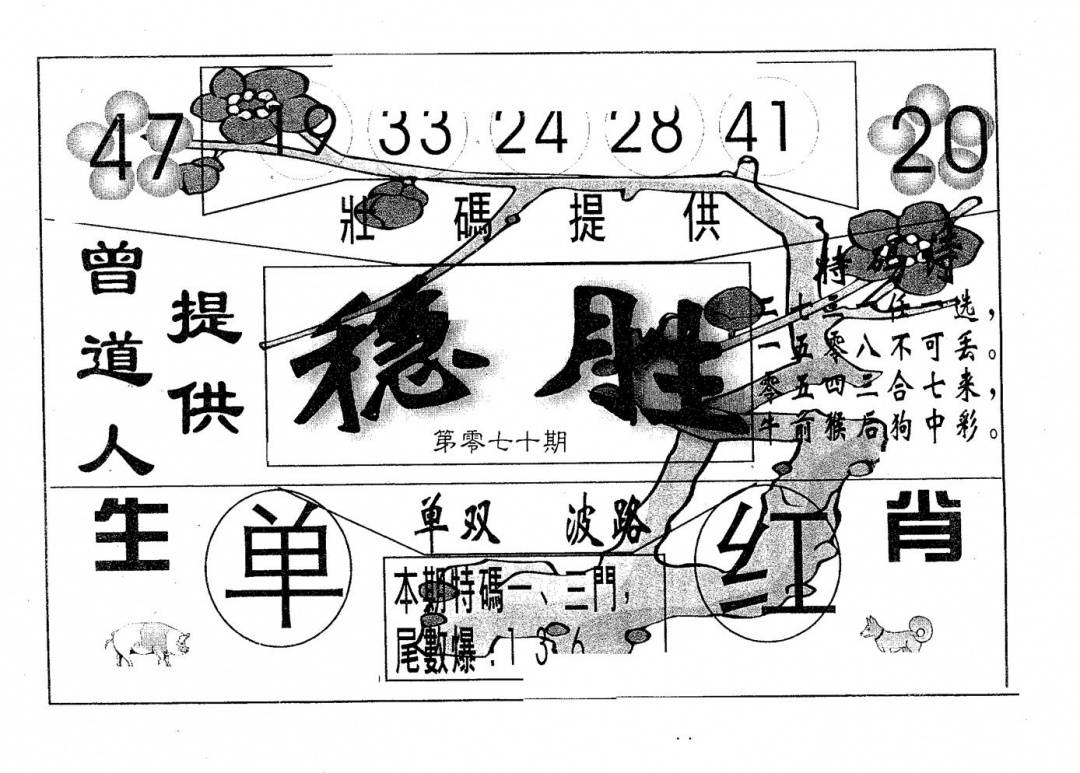 47 19 33 24 28 41 20
壯碼提供
曾道人
提供
稳胜
第零七十期
特码诗
二七三一任一选，
一五零八不可丢。
零五四三合七来，
牛前猴后狗中彩。
生
肖
单双 波路
单
红
本期特碼一、三門，
尾數爆:1 3 6